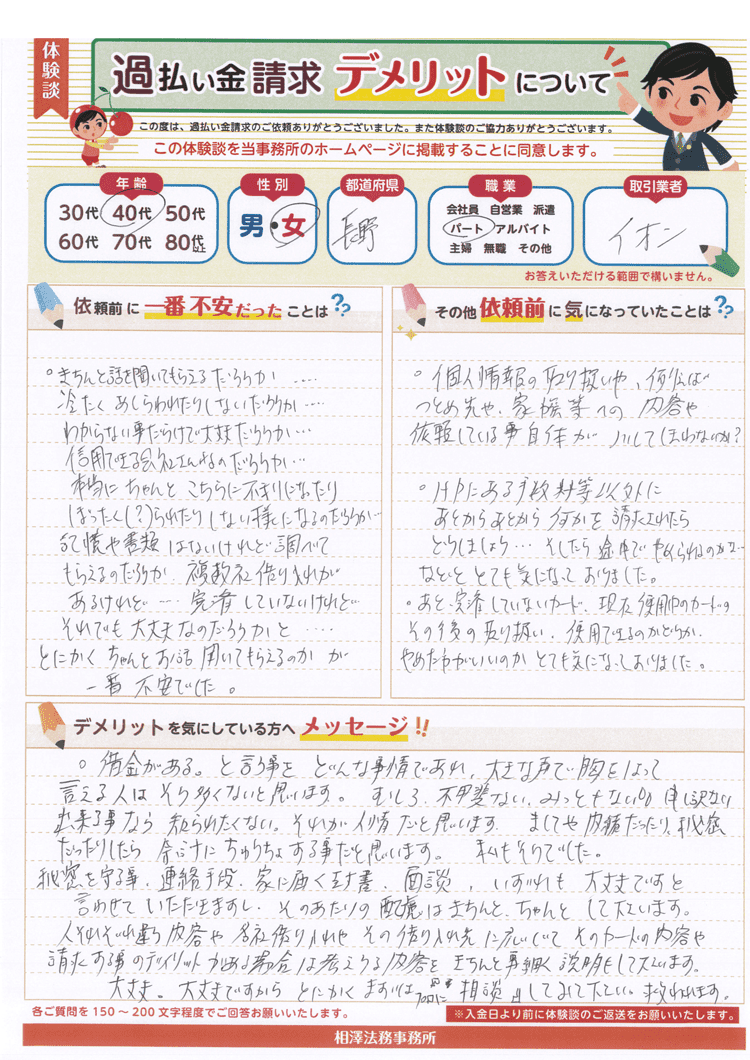 体験談
過払い金請求 デメリットについて
この度は、過払い金請求のご依頼ありがとうございました。また体験談のご協力ありがとうございます。
この体験談を当事務所のホームページに掲載することに同意します。
年齢
30代 40代 50代
60代 70代 80代以上
性別
男・女
都道府県
長野
職業
会社員 自営業 派遣
パート アルバイト
主婦 無職 その他
取引業者
イオン
お答えいただける範囲で構いません。
依頼前に一番不安だったことは??
。きちんと話を聞いてもらえるだろうか ‥‥
冷たくあしらわれたりしないだろうか…
わからない事だらけで大丈夫だろうか…
信用できる会社さんなのだろうか…
本当にちゃんとこちらに不利になたり
ぼったく(?)られたりしない様になるのだろうか…
記憶や書類はないけれど調べて
もらえるのだろうか 複数社借り入れが
あるけれど… 完済していないけれど
それでも大丈夫なのだろうかと ‥‥
とにかくちゃんとお話聞いてもらえるのかが
一番不安でした。
その他依頼前に気になっていたことは??
。個人情報の取り扱いや、例えば
つとめ先や、家族等への内容や
依頼している事自体がバレてしまわないか?
。HPにある手数料等以外に
あとからあとから何かを請求されたら
どうしましょう… そしたら途中でやめられるのかな…
などととても気になっておりました。
。あと、完済していないカード、現在使用中のカードの
その後の取り扱い、使用できるのかどうか、
やめた方がいいのかとても気になっておりました。
デメリットを気にしている方へメッセージ!!
。借金がある。と言う事をどんな事情であれ、大きな声で胸をはって
言える人はそう多くないと思います。むしろ、不甲斐ない、みっともない 申し訳ない
出来る事なら知られたくない。それが人情だと思います。ましてや内緒だったり、秘密
だったりしたら余計にちゅうちょする事だと思います。 私もそうでした。
秘密を守る事、連絡手段、家に届く封書、面談、いずれも大丈夫ですと
言わせていただきますし、そのあたりの配慮はきちんと、ちゃんとして下さいます。
人それぞれ違う内容や各社借り入れやその借り入れ先に応じてそのカードの内容や
請求する事のデメリットがある場合は考えうる内容をきちんと事細く説明をして下さいます。
大丈夫。大丈夫ですからとにかくまずは、プロに相談』してみて下さい。救われます。
各ご質問を150~200文字程度でご回答お願いいたします。
※入金日より前に体験談のご返送をお願いいたします。
相澤法務事務所